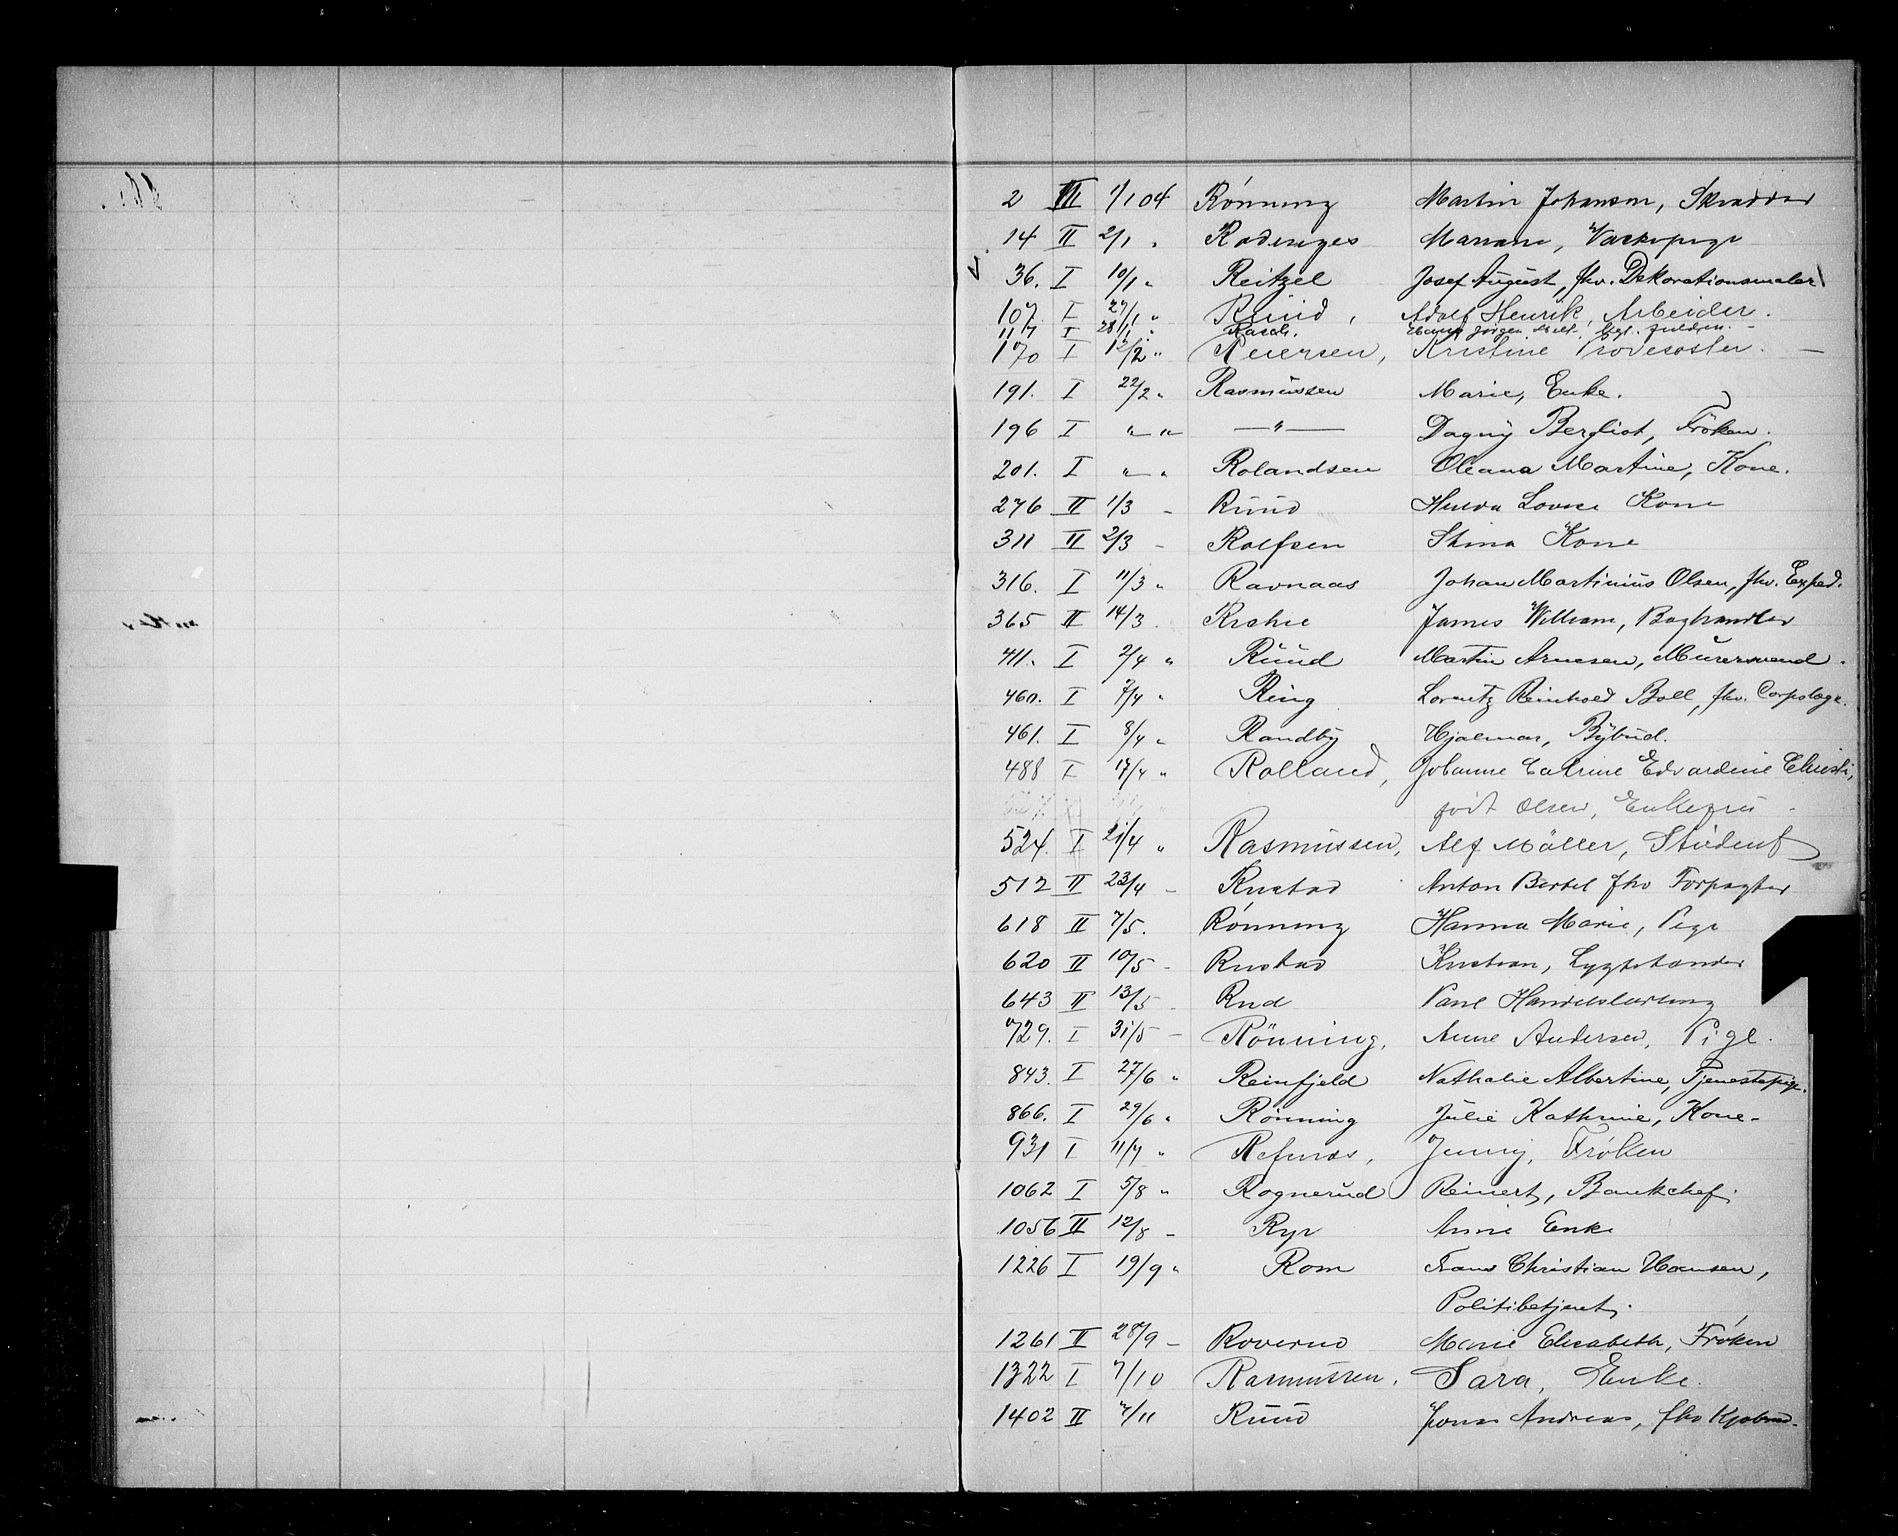 2 II 1/1 04 Rönning Martin Johanson, Skrædder
14 II 2/1 " Marianne, Vaskepige
36. I 10/1 " Reitzel Josef August, fhv. Dekorationsmaler
107 I 27/1 " Ruud, Adolf Henrik, Arbeider.
117 I 28/1 " Rasch.
170 I 12/2 " Reiersen, Kristine
191. I 22/2 " Rasmussen Marie, Enke.
196 I " " — " — Dagny Bergliot, Frøken.
201. I " " Rolandsen Oleana Martine, Kone.
276 II 1/3 - Ruud Hulda Lovise Kone
311 II 2/3 - Rolfsen Stina Kone
316. I 11/3 " Ravnaas Johan Martinius Olsen, fhv. Exped.
365 II 14/3 James William, Boghandler
411. I 2/4 " Ruud Martin Arnesen, Murersvend.
460. I 7/4 " Ring Lorentz Reinhold Boll, fhv. Corpslæge.
461. I 8/4 " Randby Hjalmar, Bybud.
488 I 17/4 " Rolland, Johanne Catrine Edvardine Christi,
født Olsen, Enkefru
524. I 21/4 " Rasmussen, Alf Möller, Student
512 II 23/4 - Rustad Anton Bertel fhv Forpagter
618 II 7/5. Rönning Hanna Marie, Pige
620 II 10/5 - Rustad Kristian, Lygtetænder
643 II 13/5 Rud Paul Handelslærling
729. I 31/5 - Rönning, Anne Andersen, Pige.
843. I 27/6 " Reinfjeld Nathalie Albertine, Tjenestepige.
866. I 29/6 " Rönning Julie Kathrine, Kone-
931 I 11/7 " Refnæs, Jenny, Frøken
1062 I 5/8 " Rognerud Reinert, Bankchef.
1056 II 12/8 - Rye Anne Enke
1226 I 19/9 " Rom Frans Christian Hansen,
Politibetjent.
1261 II 28/9 - Roverud Marie Elisabeth, Frøken
1322 I 7/10 Rasmussen. Sara, Enke.
1402 II 7/11 Ruud Jonas Andreas, fhv